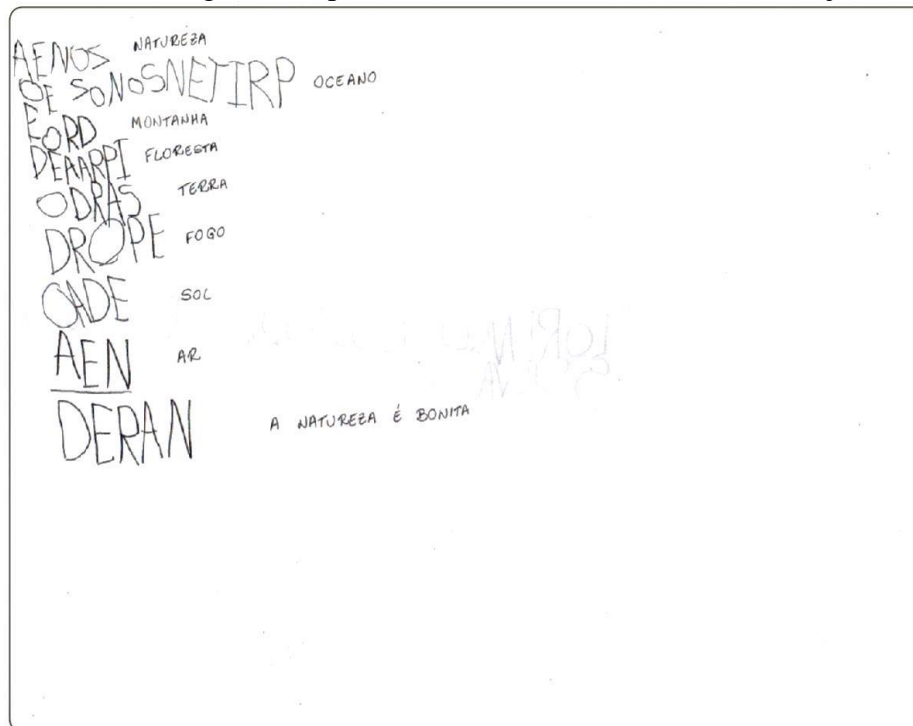 AENOS NATUREZA
OE SONOSNETIRP OCEANO
EORD MONTANHA
DEAARPI FLORESTA
ODRAS TERRA
DROPE FOGO
OADE SOL
AEN AR
DERAN A NATUREZA É BONITA